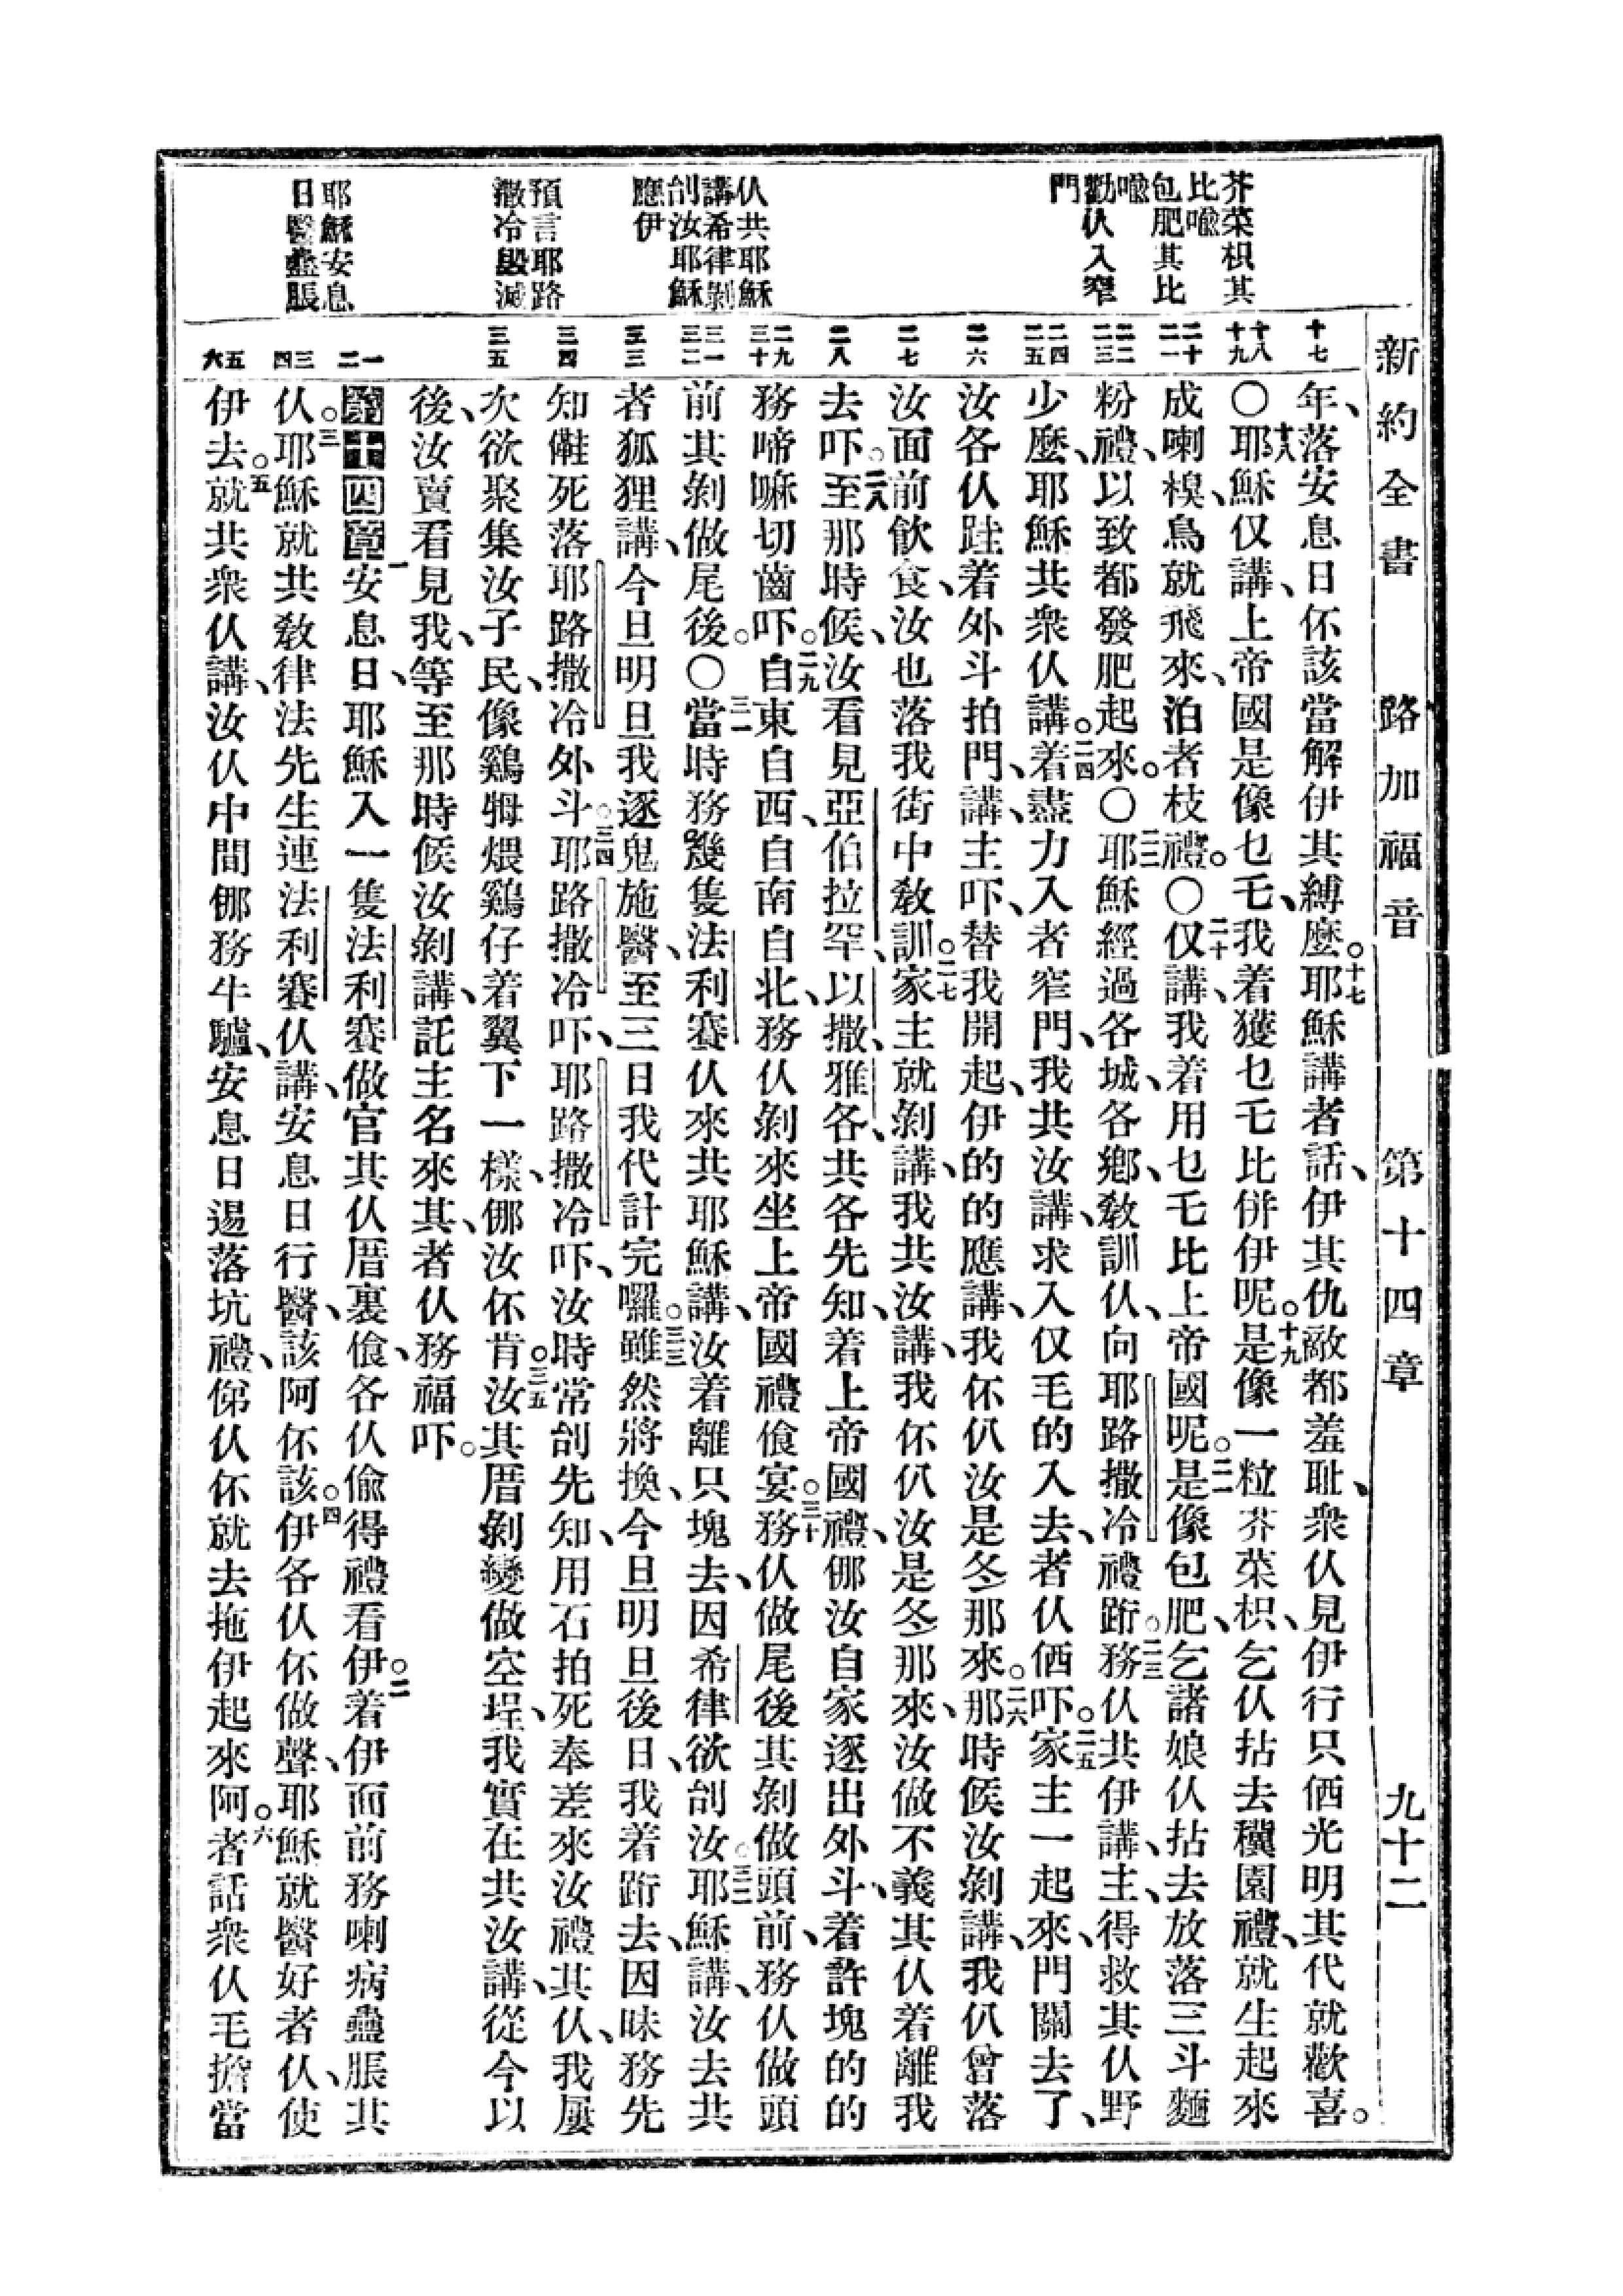 新約全書 路加福音 第十四章 九十二
芥菜枳其
比喻
包肥其比
喻
勸仈入窄
門
仈共耶穌
講希律剝
刣汝耶穌
應伊
預言耶路
撒冷毀滅
耶穌安息
日醫蠱脹
十七
十八 十九
二十 二一
二二 二三
二四 二五
二六
二七
二八
二九 三十
三一 三二
三三
三四
三五
一 二
三 四
五 六
年、落安息日伓該當解伊其縛麼。十七耶穌講者話、伊其仇敵都羞耻、衆仈見伊行只𠌥光明其代就歡喜。
〇十八耶穌仅講、上帝國是像乜乇、我着獲乜乇比併伊呢。十九是像一粒芥菜枳、乞仈拈去穬園禮、就生起來
成喇模、鳥就飛來、泊者枝禮。〇二十仅講、我着用乜毛比上帝國呢。二一是像包肥、乞諸娘仈拈去放落三斗麵
粉禮、以致都發肥起來。〇二二耶穌經過各城、各鄉、敎訓仈、向耶路撒冷禮跲。二三務仈共伊講、主、得救其仈野
少麼、耶穌共衆仈講。二四着盡力入者窄門、我共汝講、求入仅毛的入去、者仈𠌥吓。二五家主一起來、門關去了、
汝各仈跬着外斗拍門、講、主吓、替我開起、伊的的應講、我伓仈汝是冬那來。二六那時候汝剝講、我仈曾落
汝面前飲食、汝也落我街中敎訓。二七家主就剝講、我共汝講、我伓仈汝是冬那來、汝做不義其仈着離我
去吓。二八至那時候、汝看見亞伯拉罕、以撒、雅各、共各先知、着上帝國禮、𠆧汝自家逐出外斗、着許塊的的
務啼嘛切齒吓。二九自東自西、自南自北、務仈剝來坐上帝國禮飡宴。三十務仈做尾後其剝做頭前、務仈做頭
前其剝做尾後。〇三一當時務幾隻法利賽仈來共耶穌講、汝着離只塊去、因希律欲刣汝。三二耶穌講、汝去共
者狐狸講、今旦明旦我逐鬼施醫、至三日我代計完囉。三三雖然將換、今旦明旦後日、我着跲去、因昧務先
知𠎠死落耶路撒冷外斗。三四耶路撒冷吓、耶路撒冷吓、汝時常刣先知、用石拍死奉差來汝禮其仈、我屢
次欲聚集汝子民、像鷄𤘅煨鷄仔着翼下一樣、𠆧汝伓肯。三五汝其厝剝變做空埕、我實在共汝講、從今以
後、汝賣看見我、等至那時候汝剝講、託主名來其、者仈務福吓。
第十四章 一安息日、耶穌入一隻法利賽做官其仈厝裏飡、各仈偸得禮看伊。二着伊面前務喇病蠱脹其
仈。三耶穌就共敎律法先生連法利賽仈講、安息日行醫、該阿伓該。四伊各仈伓做聲、耶穌就醫好者仈、使
伊去。五就共衆仈講、汝仈中間𠆧務牛驢、安息日逿落坑禮、俤仈伓就去拖伊起來阿。六者話衆仈乇擔當